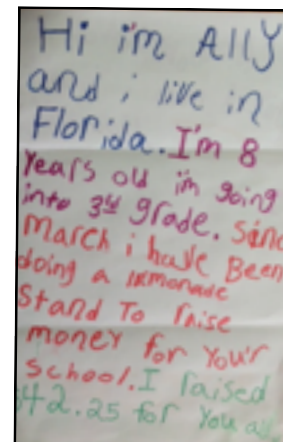 Hi i'm Ally
and i live in
Florida. I'm 8
years old i'm going
into 3rd grade. Sinc
March i have Been
doing a lemonade
Stand To raise
money for You'r
School. I raised
$42.25 for You all.